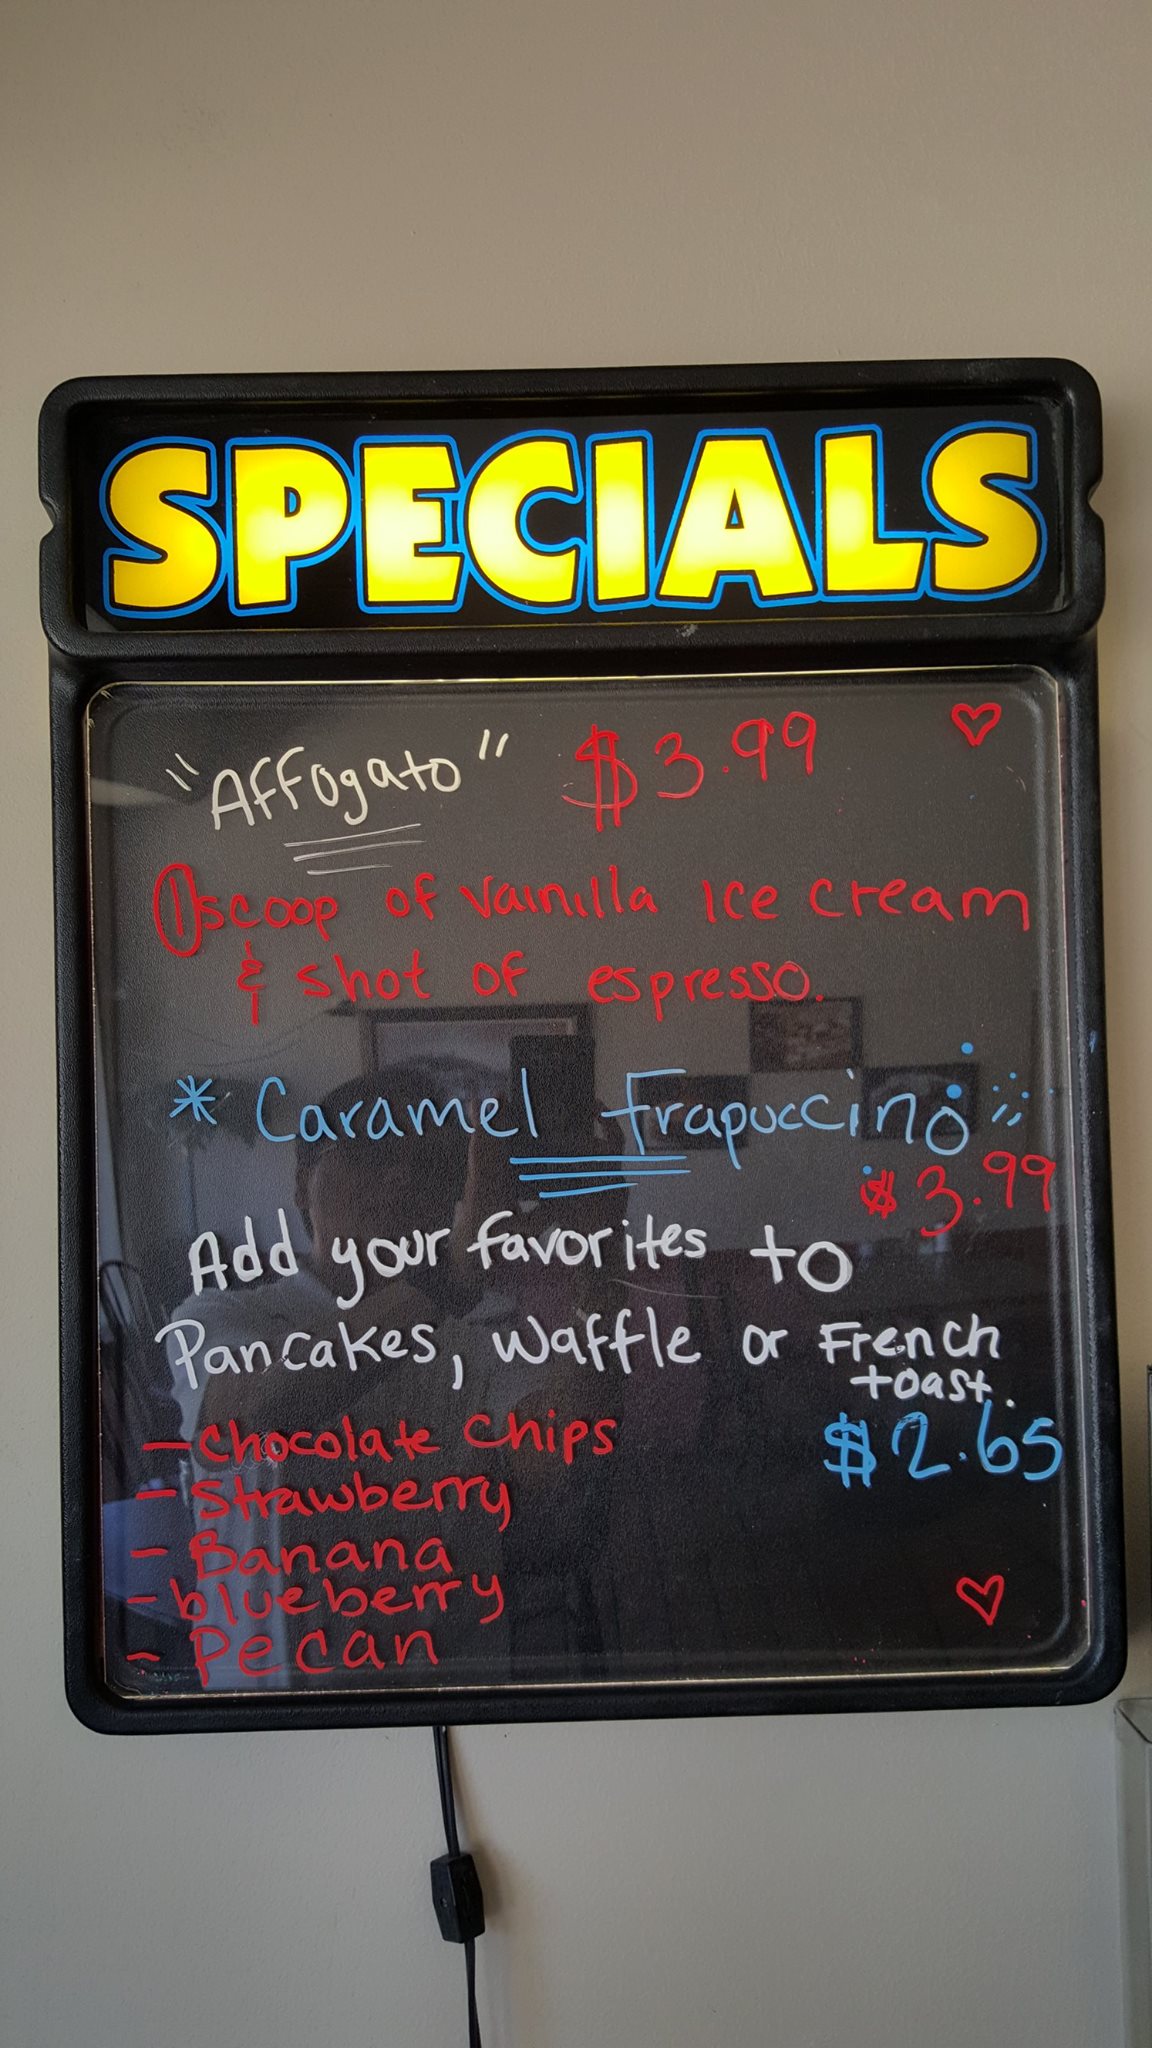 SPECIALS
"Affogato" $3.99
1 scoop of vainilla Ice cream
& shot of espresso.
* Caramel Frapuccino
$3.99
Add your favorites to
Pancakes, Waffle or French
toast.
$2.65
- Chocolate Chips
- Strawberry
- Banana
- blueberry
- Pecan